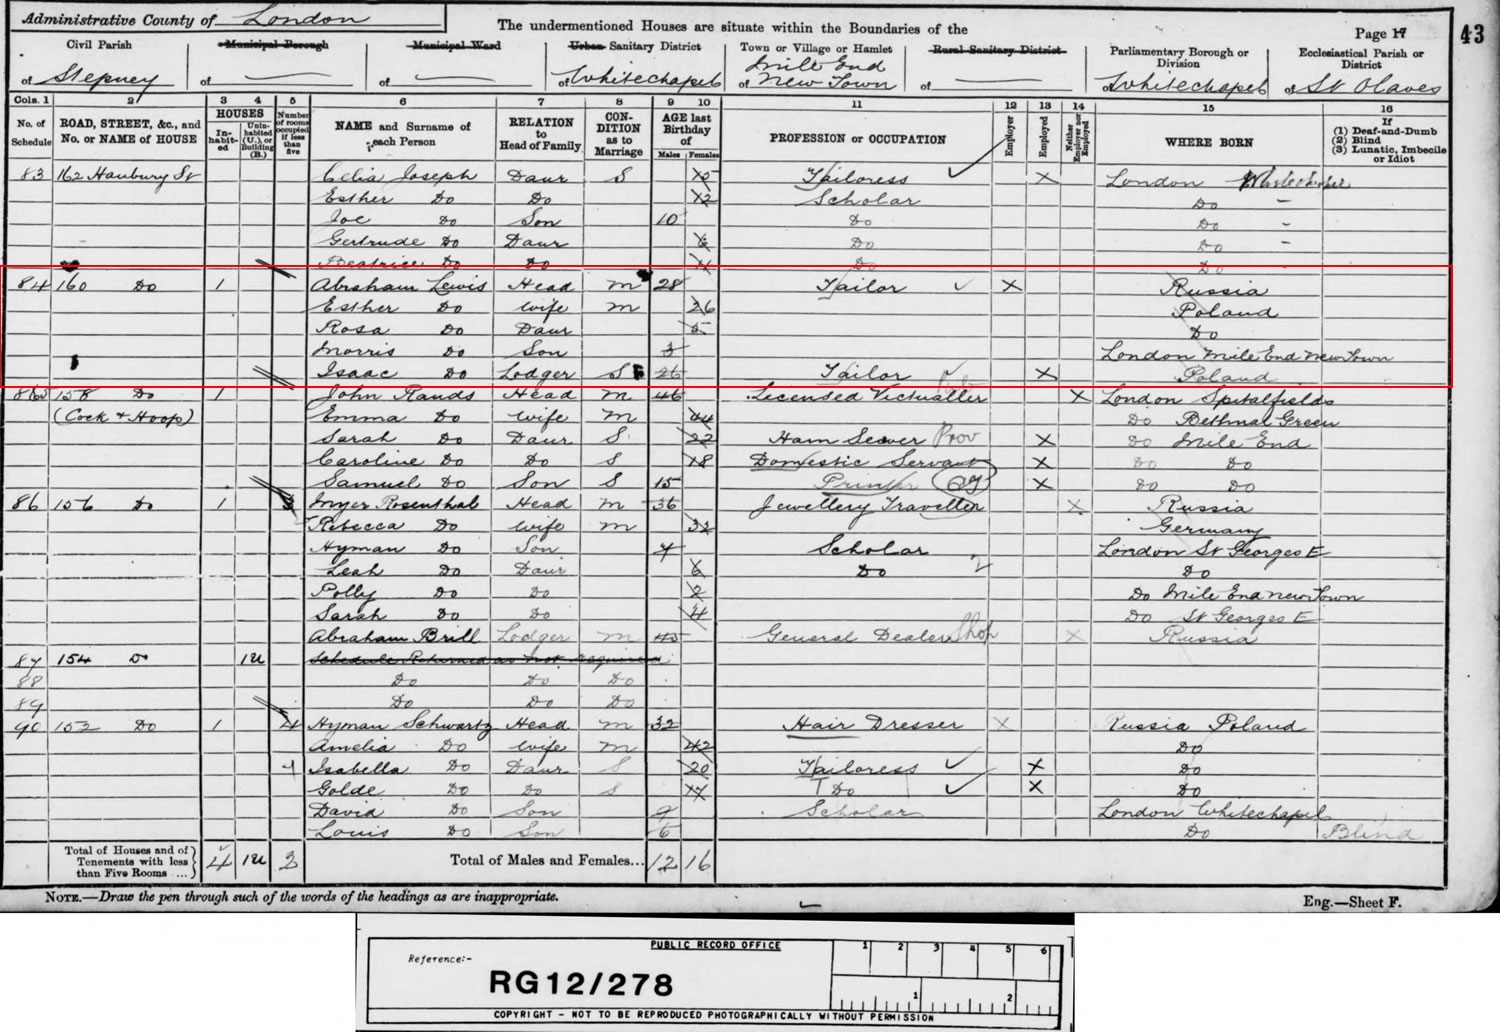 Administrative County of London
The undermentioned Houses are situate within the Boundaries of the
Page 17
43
Civil Parish
of Stepney
Municipal Borough
of
Municipal Ward
of
Urban Sanitary District
of Whitechapel
Town or Village or Hamlet
of Mile End New Town
Rural Sanitary District
of
Parliamentary Borough or Division
of Whitechapel
Ecclesiastical Parish or District
of St Olaves
Cols. 1 2 3 4 5 6 7 8 9 10 11 12 13 14 15 16
No. of Schedule
ROAD, STREET, &c., and No. or NAME of HOUSE
HOUSES
In-habit-ed
Unin-habited (U.), or Building (B.)
Number of rooms occupied if less than five
NAME and Surname of each Person
RELATION to Head of Family
CON-DITION as to Marriage
AGE last Birthday of
Males Females
PROFESSION or OCCUPATION
Employer
Employed
Neither Employer nor Employed
WHERE BORN
If
(1) Deaf-and-Dumb
(2) Blind
(3) Lunatic, Imbecile or Idiot
83 162 Hanbury St Celia Joseph Daur S Tailoress X London
Esther Do Do 12 Scholar Do
Joe Do Son 10 Do Do
Gertrude Do Daur 6 Do Do
Beatrice Do Do Do Do
84 160 Do 1 Abraham Lewis Head M 28 Tailor X Russia
Esther Do Wife M 26 Poland
Rosa Do Daur 5 Do
Morris Do Son 3 London Mile End New Town
Isaac Do Lodger S 26 Tailor X Poland
85 158 Do 1 John Rands Head M 46 Licensed Victualler X London Spitalfields
(Cock & Hoop) Emma Do Wife M 44 Do Bethnal Green
Sarah Do Daur S 22 Ham Sewer Prov X Do Mile End
Caroline Do Do S 18 Domestic Servant X Do Do
Samuel Do Son S 15 Printer X Do Do
86 156 Do 1 3 Myer Rosenthal Head M 36 Jewellery Traveller X Russia
Rebecca Do Wife M 32 Germany
Hyman Do Son 7 Scholar London St Georges E
Leah Do Daur 6 Do Do
Polly Do Do 2 Do Mile End New Town
Sarah Do Do 4 Do St Georges E
Abraham Brill Lodger M 45 General Dealer Shop X Russia
87 154 Do 1U Schedule Returned as not required
88 Do Do Do
89 Do Do Do
90 152 Do 1 4 Hyman Schwartz Head M 32 Hair Dresser X Russia Poland
Amelia Do Wife M 42 Do
Isabella Do Daur S 20 Tailoress X Do
Golde Do Do S 17 T Do X Do
David Do Son 9 Scholar London Whitechapel
Louis Do Son 6 Do Blind
Total of Houses and of Tenements with less than Five Rooms ... 4 1U 3
Total of Males and Females... 12 16
NOTE.—Draw the pen through such of the words of the headings as are inappropriate.
Eng.—Sheet F.
PUBLIC RECORD OFFICE
1 2 3 4 5 6
Reference:-
RG12/278
1 2
COPYRIGHT - NOT TO BE REPRODUCED PHOTOGRAPHICALLY WITHOUT PERMISSION